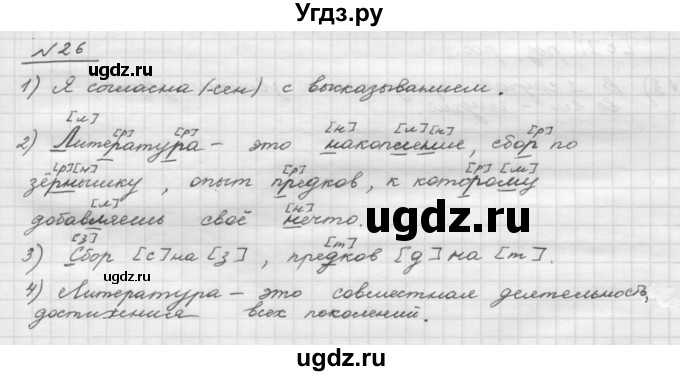 Угдз.ру
№26
1) Я согласна (-сен) с высказыванием.
[л] [р] [р] [н] [л] [н] [р]
2) Литература – это накопление, сбор по
[р] [н] [р] [р] [м]
зёрнышку, опыт предков, к которому
[л] [н]
добавляешь своё нечто.
[з] [т]
3) Сбор [с] на [з], предков [д] на [т].
4) Литература – это совместная деятельность,
достижения всех поколений.
ugdz.ru
ugdz.ru
ugdz.ru
ugdz.ru
ugdz.ru
ugdz.ru
ugdz.ru